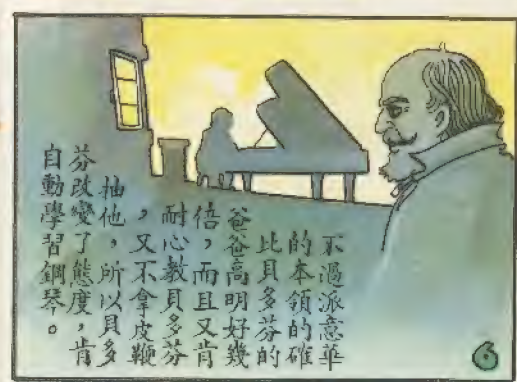 不過派意華
的本領的確
比貝多芬的
爸爸高明好幾
倍，而且又肯
耐心教貝多芬
，又不拿皮鞭
抽他，所以貝多
芬改變了態度，肯
自動學習鋼琴。
6